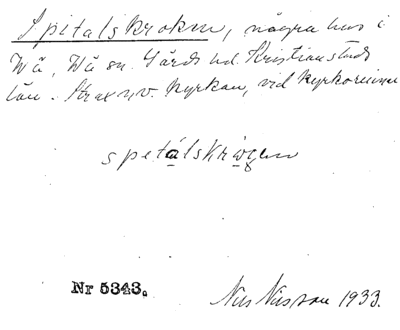 Spitalskroken, några hus i
Wä, Wä sn. Gärds hd. Kristianstads
län. Strax n.v. kyrkan, vid kyrkoruinen
spetálskrogen
Nr 5343.
Nils Nilsson 1933.